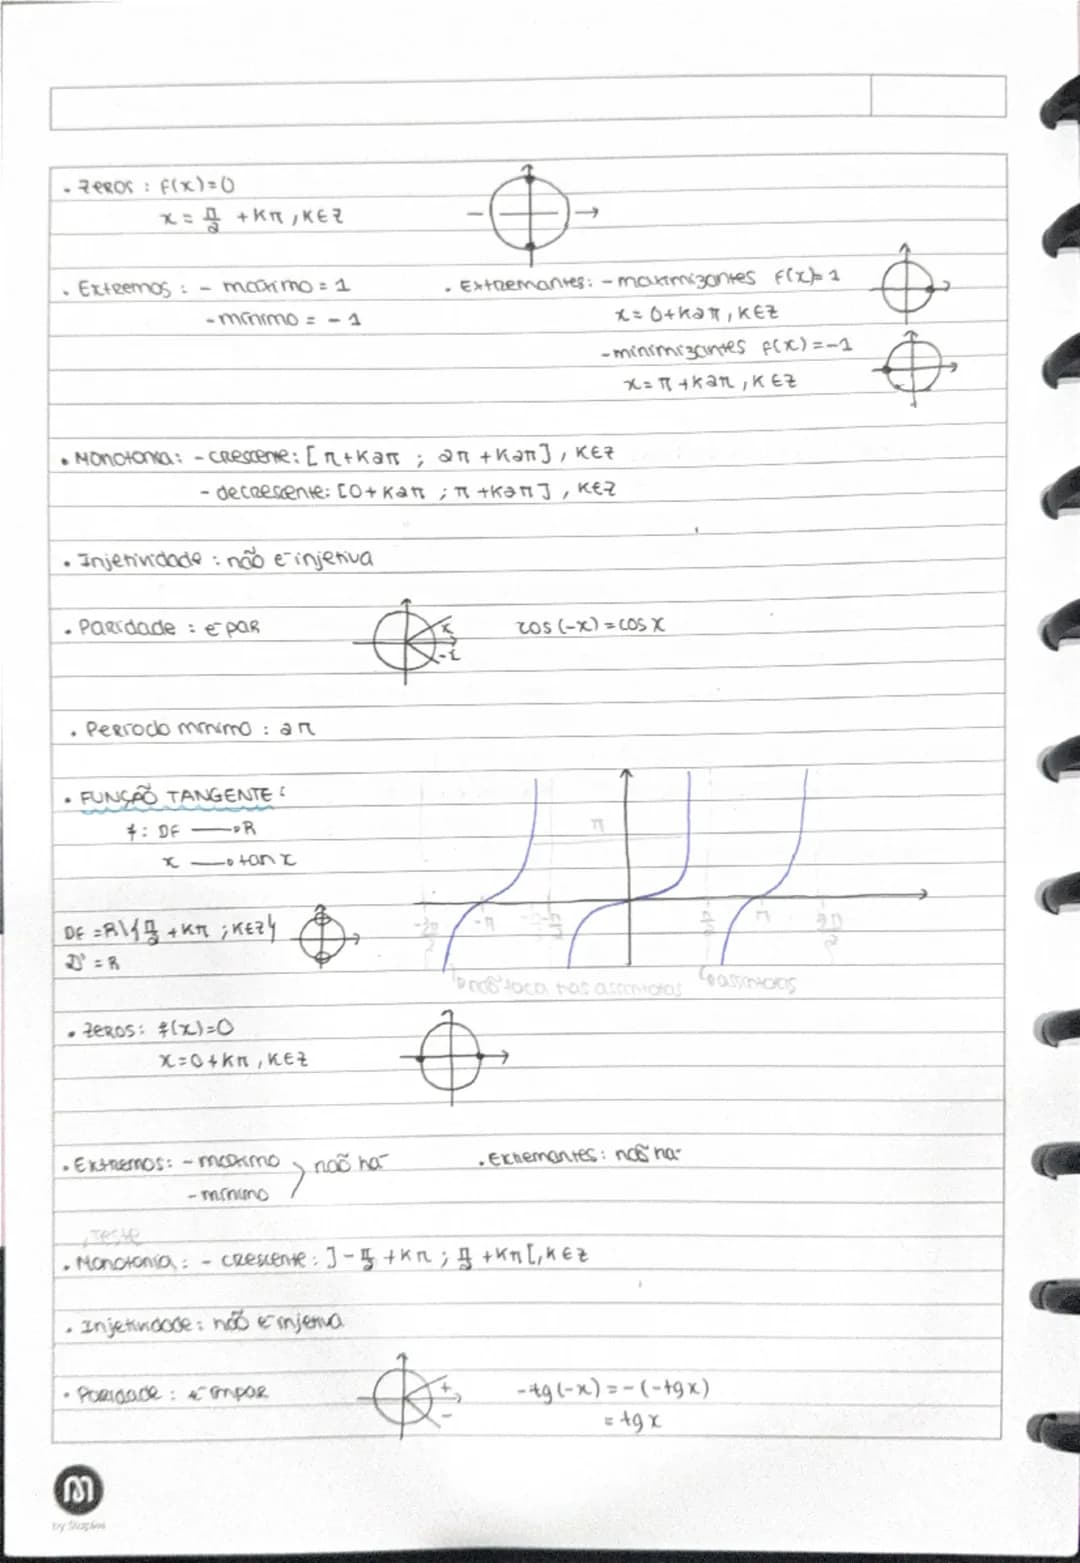 • Zeros : f(x)=0
x = π/2 + Kπ , K∈Z
• Extremos : - máximo = 1
- mínimo = - 1
• Extremantes: - maximizantes f(x)=1
x = 0+K2π, K∈Z
- minimizantes f(x) = -1
x = π + K2π , K∈Z
• Monotonia: - crescente: [π+K2π ; 2π +K2π] , K∈Z
- decrescente: [0+K2π ; π +K2π] , K∈Z
• Injetividade : não é injetiva
• Paridade : é par
x
-x
cos (-x) = cos x
• Período mínimo : 2π
• FUNÇÃO TANGENTE :
f: Df → R
x → tan x
π
Df = R\{π/2 + Kπ ; K∈Z}
D' = R
-3π/2
-π
-π/2
π/2
π
3π/2
não toca nas assintotas
assintotas
• Zeros: f(x)=0
x = 0 + Kπ , K∈Z
• Extremos: - máximo
- mínimo
não há
• Extremantes: não há
teste
• Monotonia : - crescente : ]-π/2 + Kπ ; π/2 + Kπ[, K∈Z
• Injetividade : não é injetiva
• Paridade : é ímpar
+
-
-tg (-x) = - (-tg x)
= tg x
M
by Staples